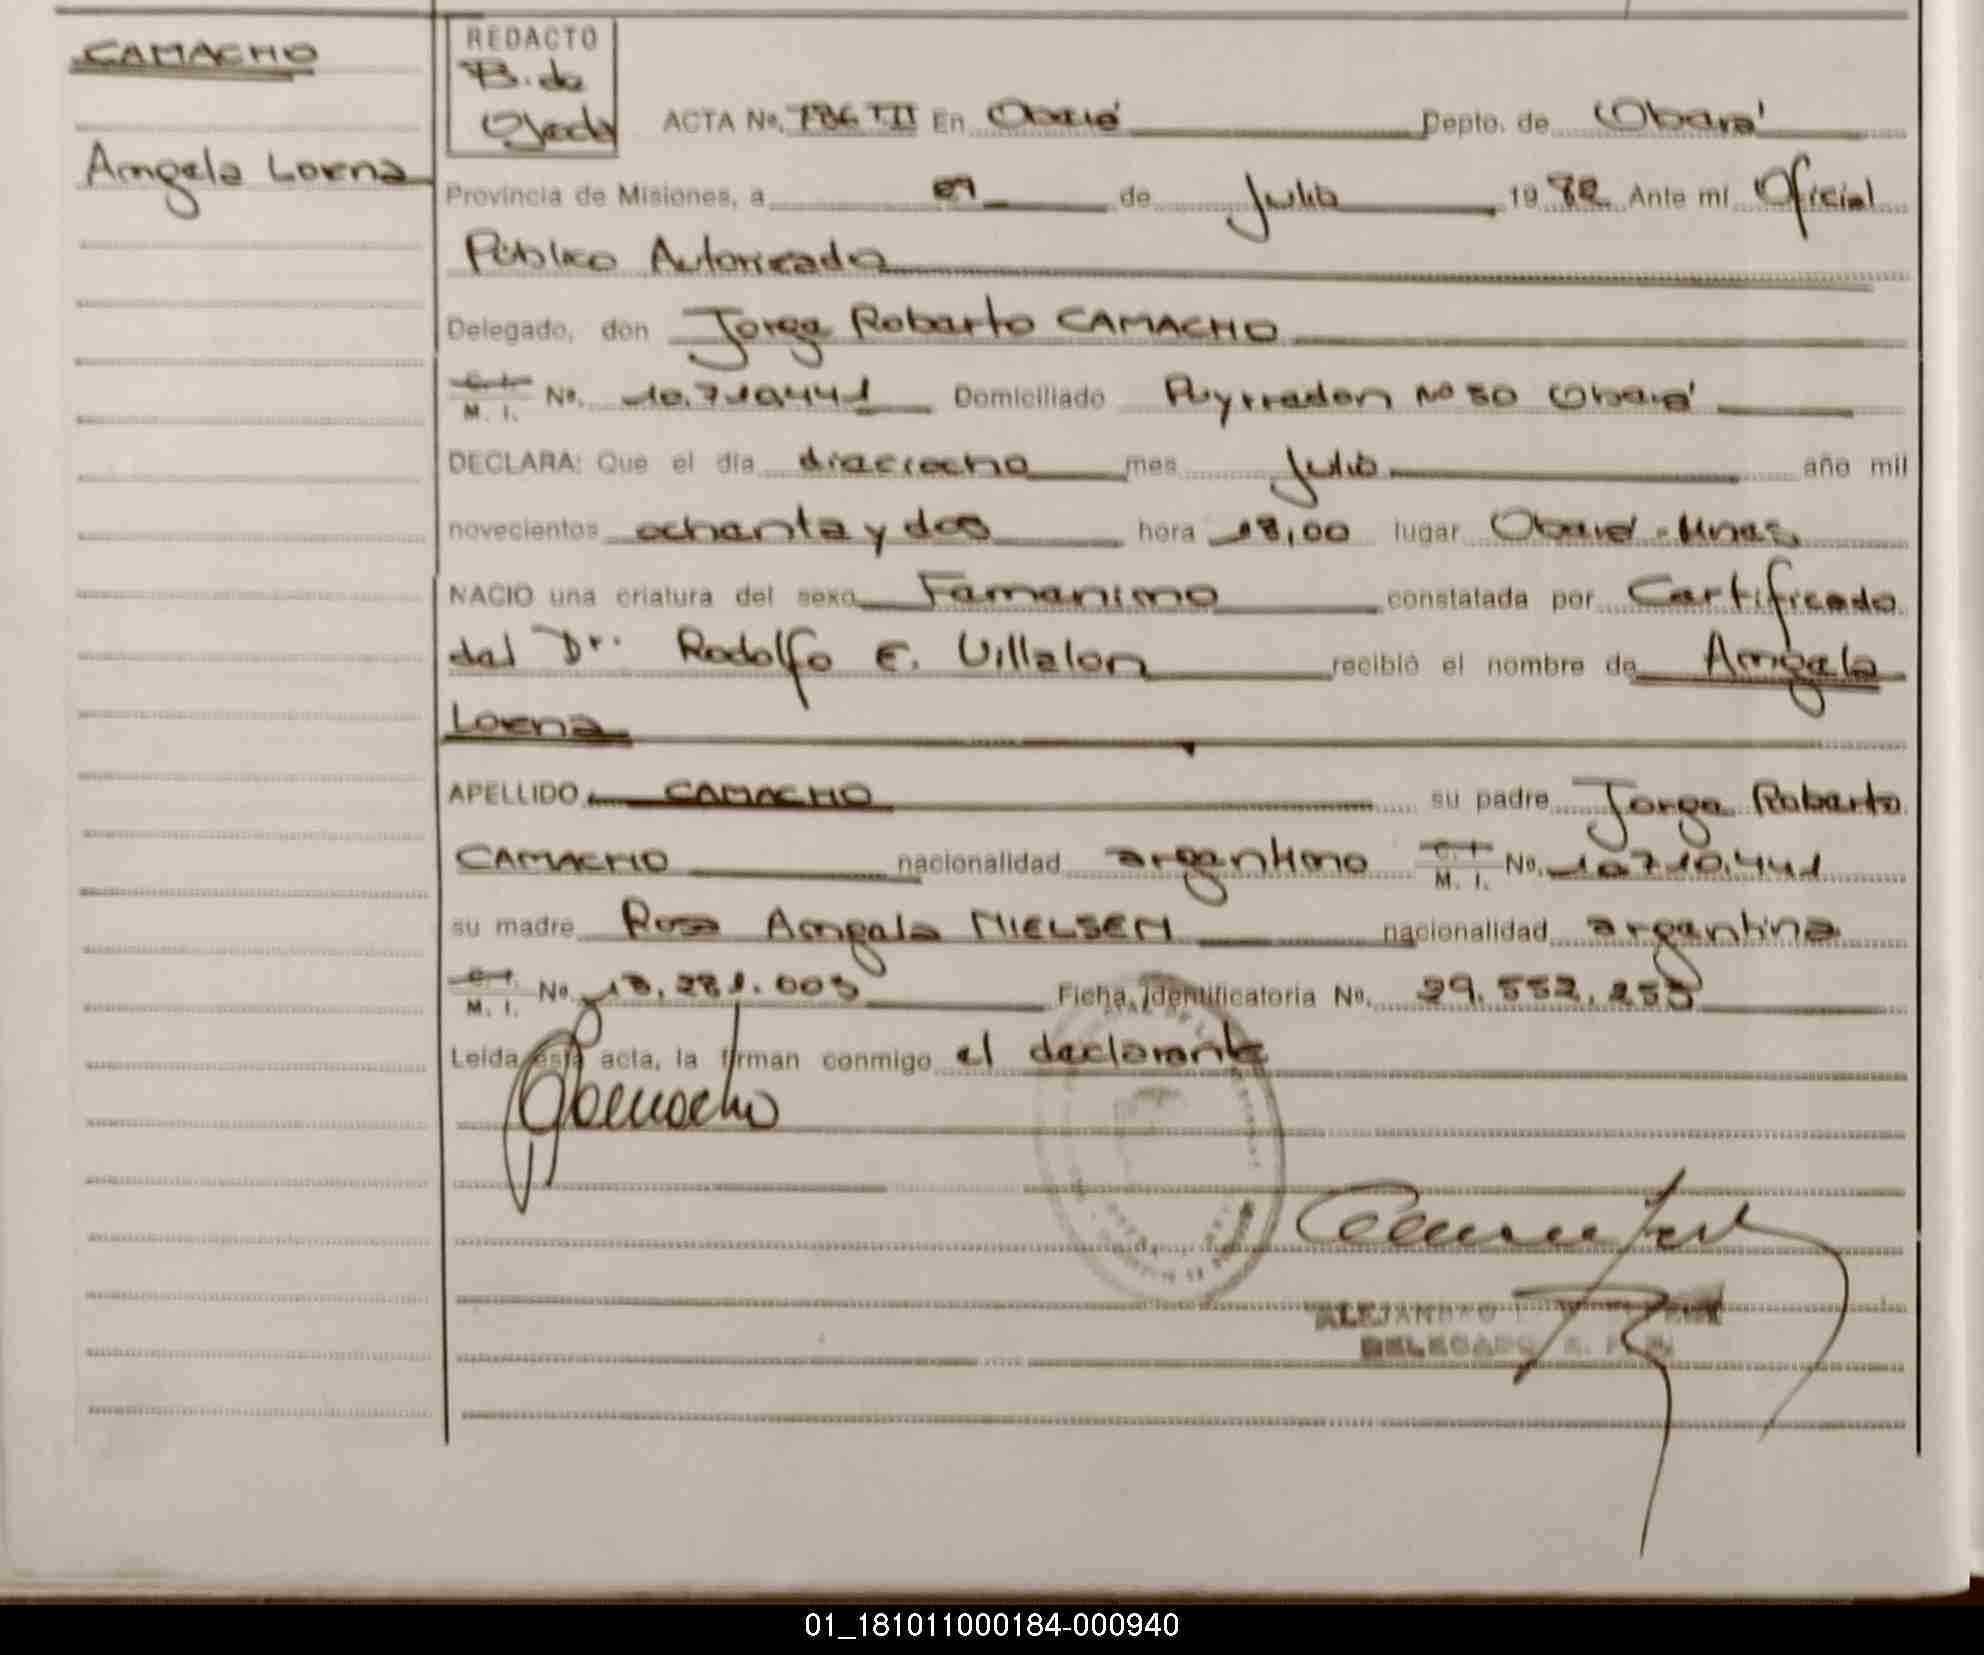 CAMACHO
Angela Lorena
REDACTO
B. de
Ojeda
ACTA No. 786 T.II En Oberá Depto. de Oberá
Provincia de Misiones, a 27 de Julio 1982 Ante mí Oficial
Público Autorizado
Delegado, don Jorge Roberto CAMACHO
C. I. M. I. No. 10.710.441 Domiciliado Puyrredon Nº 50 Oberá
DECLARA: Que el día dieciocho mes Julio año mil
novecientos ochenta y dos hora 18,00 lugar Oberá - Mnes
NACIO una criatura del sexo Femenino constatada por Certificado
del Dr. Rodolfo E. Villalon recibió el nombre de Angela
Lorena
APELLIDO CAMACHO su padre Jorge Roberto
CAMACHO nacionalidad argentino C. I. M. I. No. 10.710.441
su madre Rosa Angela NIELSEN nacionalidad argentina
C. I. M. I. No. 13.281.003 Ficha Identificatoria No. 29.552.253
Leída esta acta, la firman conmigo el declarante
JCamacho
ALEJANDRO
DELEGADO
01_181011000184-000940